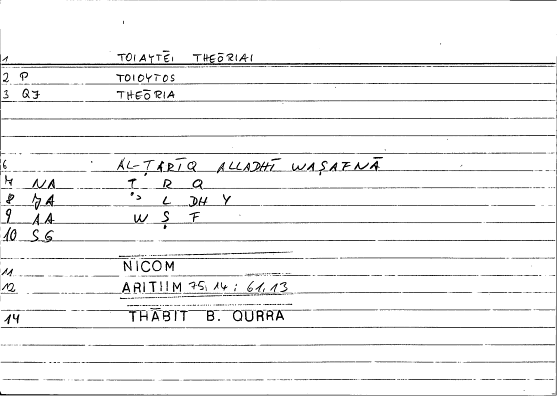 1 TOIAYTĒI THEŌRIAI
2 P TOIOYTOS
3 QJ THEŌRIA
6 AL-ṬARĪQ ALLADHĪ WAṢAFNĀ
7 NA Ṭ R Q
8 JA L DH Y
9 AA W Ṣ F
10 SG
11 NICOM
12 ARITIIM 75,14 : 61,13
14 THĀBIT B. QURRA